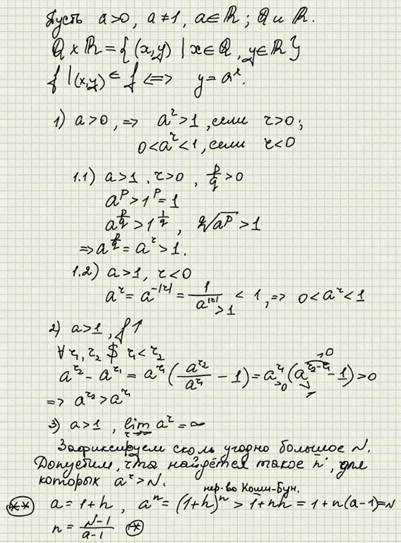 Пусть a>0, a≠1, a∈ℝ; ℚ и ℝ.
ℚ×ℝ={(x,y) | x∈ℚ, y∈ℝ}
f | (x,y)∈f ⟺ y=a^x.
1) a>0, ⇒ a^r>1, если r>0;
0<a^r<1, если r<0
1.1) a>1, r>0, p/q>0
a^p>1^p=1
a^(p/q)>1^(1/q), ᑫ√(a^p)>1
⇒a^(p/q)=a^r>1.
1.2) a>1, r<0
a^r=a^(-|r|)=1/a^|r| <1, ⇒ 0<a^r<1
>1
2) a>1, f↑
∀r₁,r₂ $ r₁<r₂
a^(r₂)-a^(r₁)=a^(r₁)(a^(r₂)/a^(r₁)-1)=a^(r₁)(a^(r₂-r₁)-1)>0
⇒ a^(r₂)>a^(r₁)
3) a>1, lim a^r=∞
Зафиксируем сколь угодно большое N.
Допустим, что найдётся такое n, для
которых a^r>N.
нер-во Коши-Бун.
** a=1+h, a^n=(1+h)^n>1+nh=1+n(a-1)=N
n=(N-1)/(a-1) *